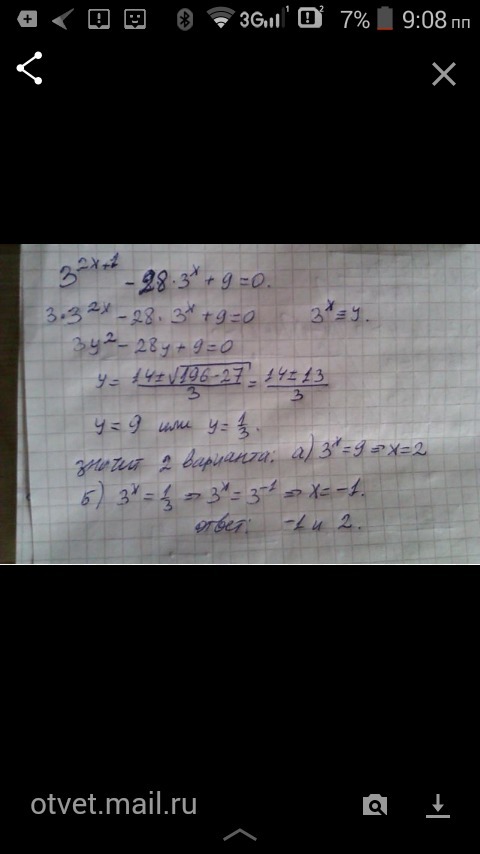 3G 7% 9:08 пп
3^{2x+1} - 28·3^x + 9 = 0.
3·3^{2x} - 28·3^x + 9 = 0 3^x = y.
3y² - 28y + 9 = 0
y = \frac{14±\sqrt{196-27}}{3} = \frac{14±13}{3}
y = 9 или y = \frac{1}{3}.
значит 2 варианта: а) 3^x = 9 ⇒ x = 2
б) 3^x = \frac{1}{3} ⇒ 3^x = 3^{-1} ⇒ x = -1.
ответ: -1 и 2.
otvet.mail.ru